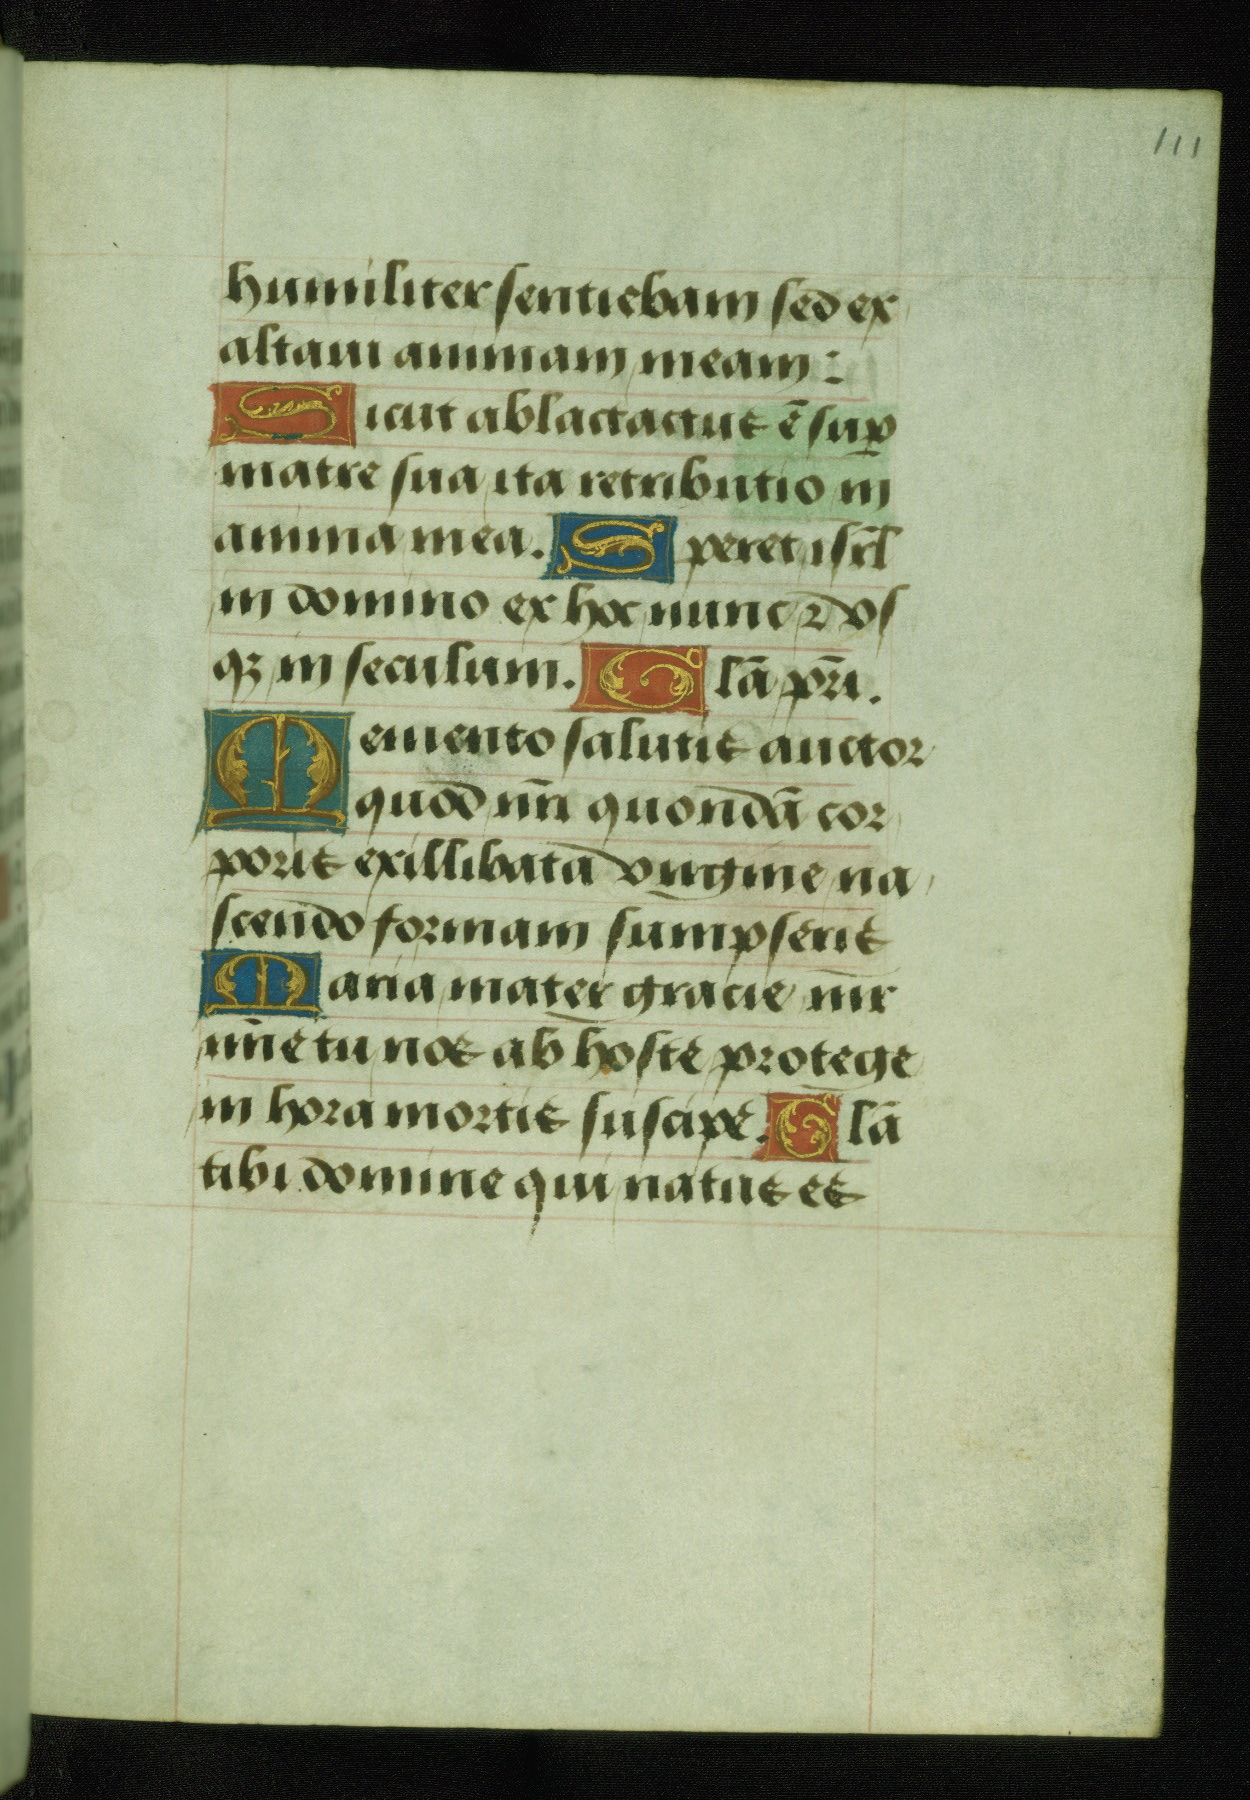 111
humiliter sentiebam sed ex
altaui animam meam :
Sicut ablactactus ē sup̱
matre sua ita retributio in
anima mea. Speret isr̄l
in domino ex hoc nunc ꝛ vs
qꝫ in seculum. Glā pr̄i.
Memento salutis auctor
quod nr̄i quondā cor
poris ex illibata virgine na
scendo formam sumpseris
Maria mater gracie mr̄
mīe tu nos ab hoste protege
in hora mortis suscipe. Glā
tibi domine qui natus es